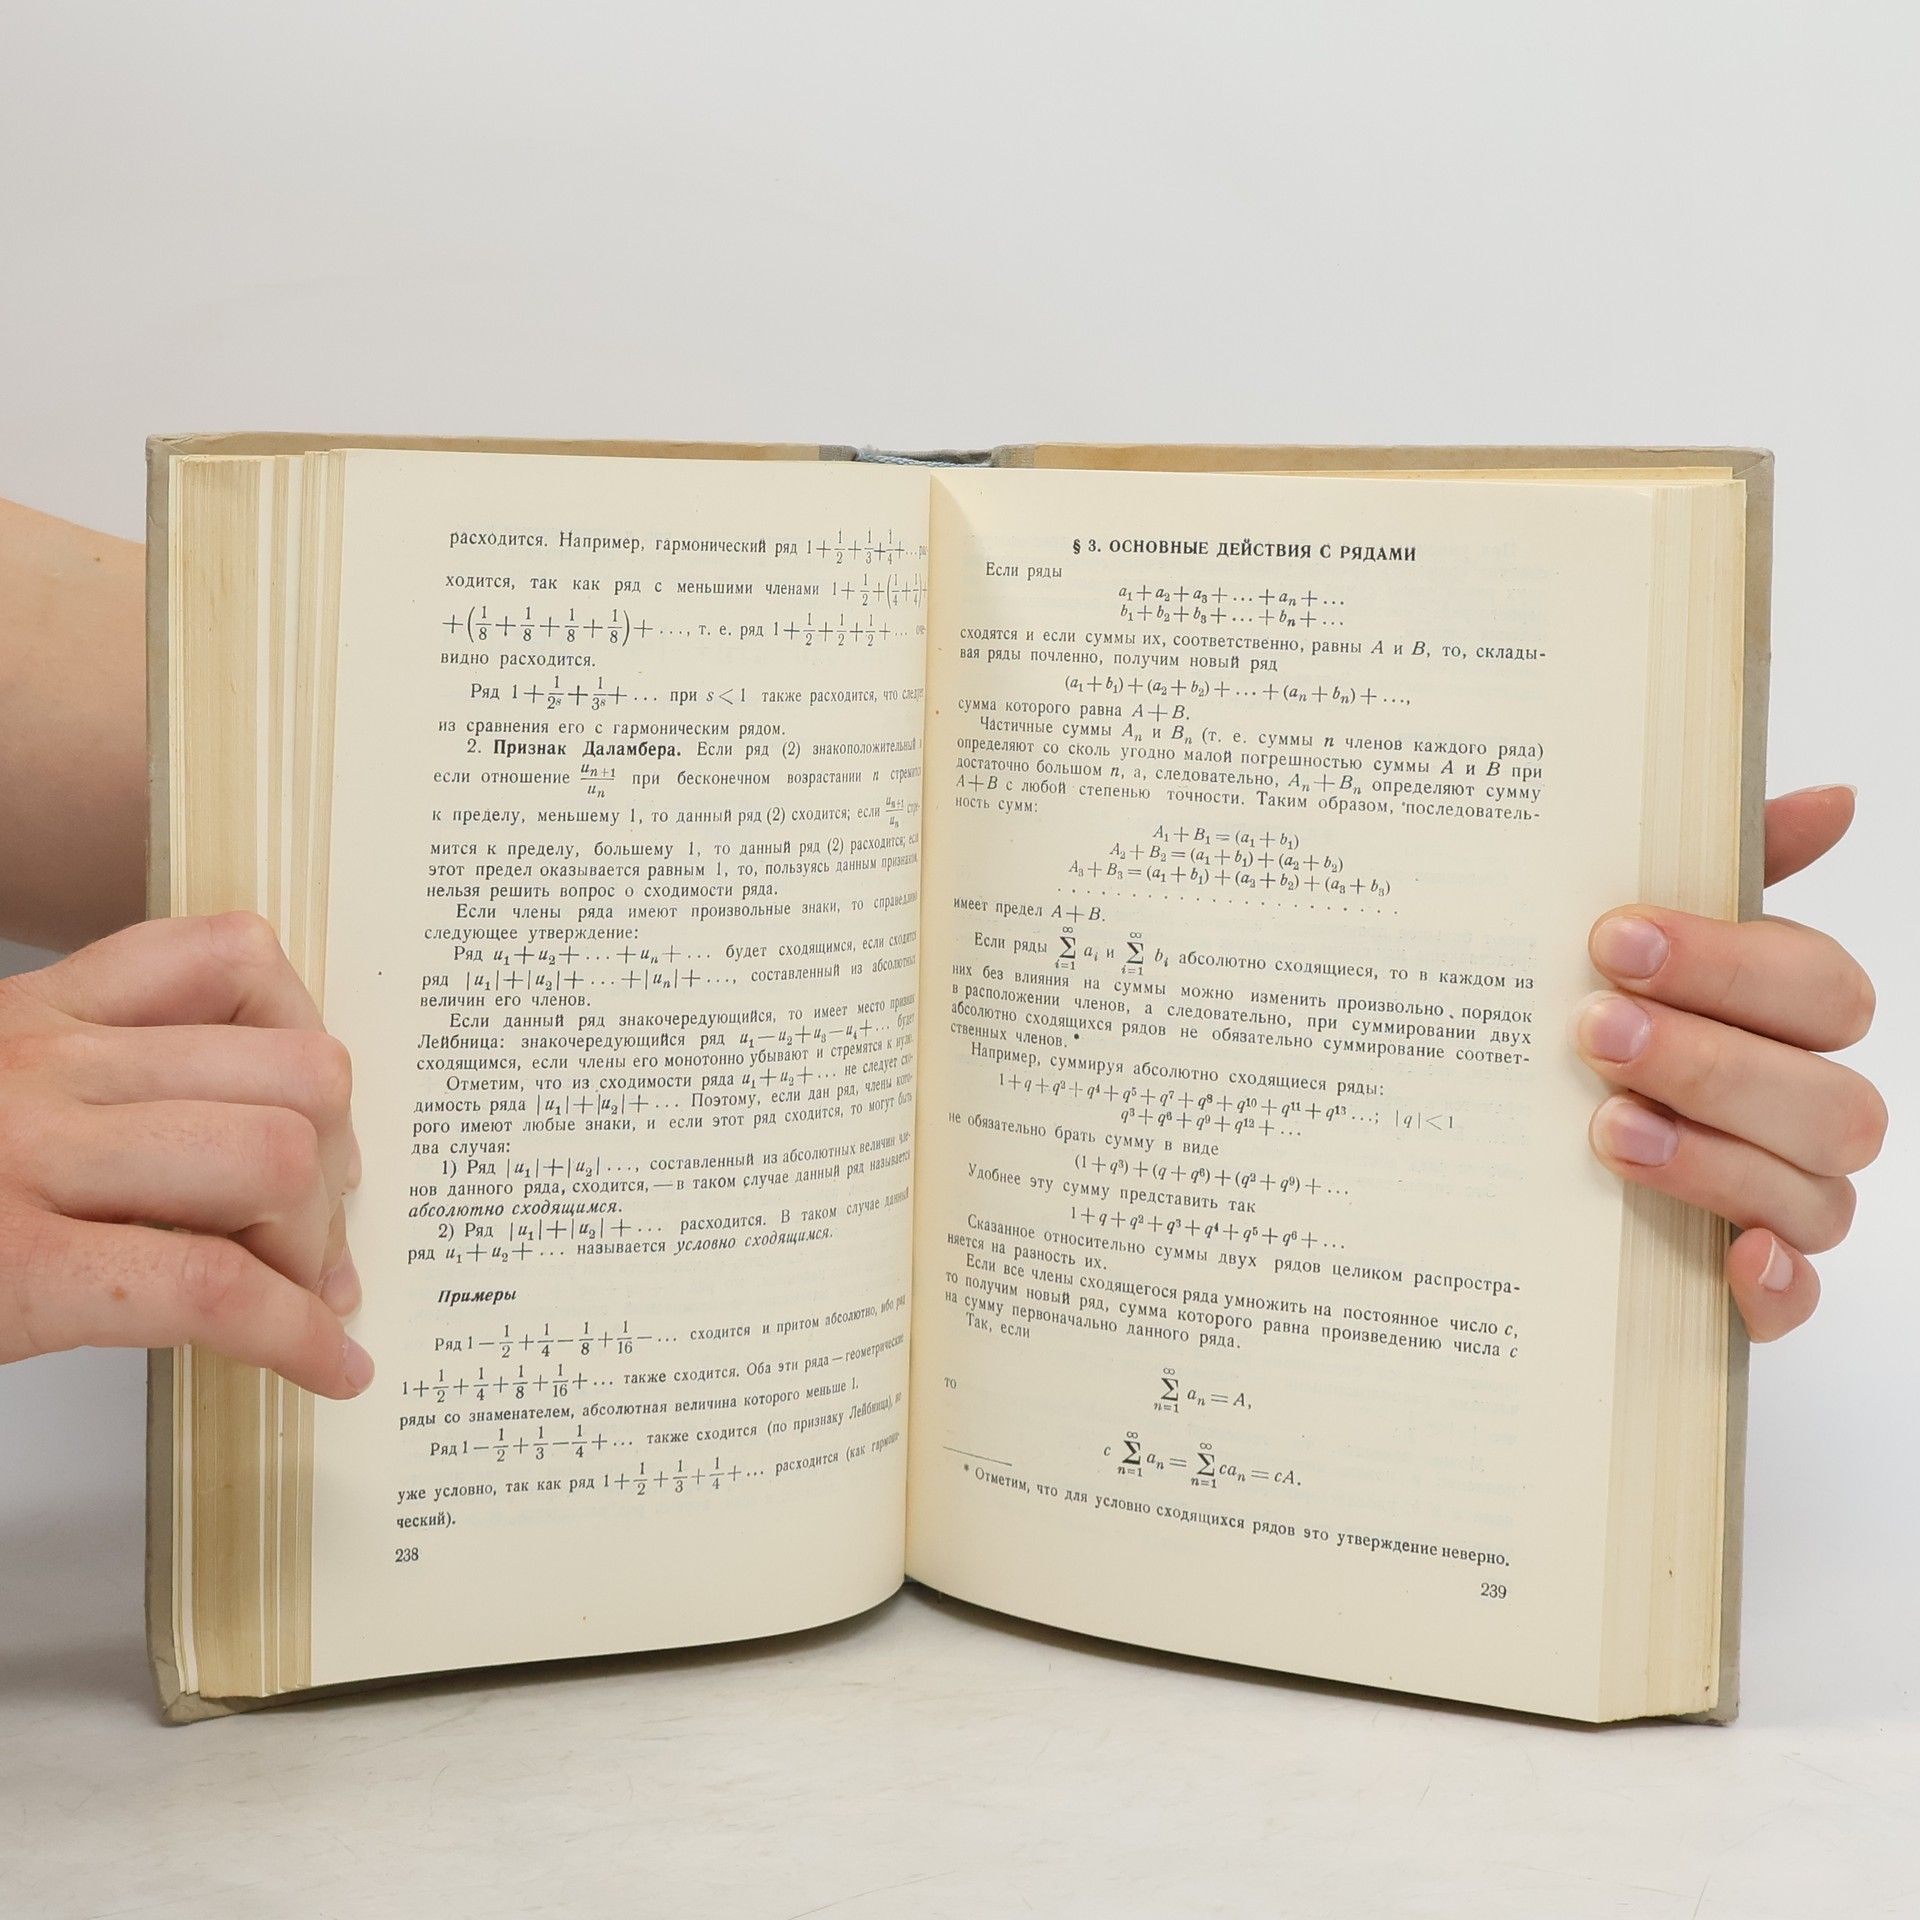 расходится. Например, гармонический ряд 1+1/2+1/3+1/4+...
ходится, так как ряд с меньшими членами 1+1/2+(1/4+1/4)+
+(1/8+1/8+1/8+1/8)+..., т. е. ряд 1+1/2+1/2+1/2+... оче-
видно расходится.
Ряд 1+1/2ˢ+1/3ˢ+... при s<1 также расходится, что следует
из сравнения его с гармоническим рядом.
2. Признак Даламбера. Если ряд (2) знакоположительный и
если отношение uₙ₊₁/uₙ при бесконечном возрастании n стремится
к пределу, меньшему 1, то данный ряд (2) сходится; если uₙ₊₁/uₙ стре-
мится к пределу, большему 1, то данный ряд (2) расходится; если
этот предел оказывается равным 1, то, пользуясь данным признаком,
нельзя решить вопрос о сходимости ряда.
Если члены ряда имеют произвольные знаки, то справедливо
следующее утверждение:
Ряд u₁+u₂+...+uₙ+... будет сходящимся, если сходится
ряд |u₁|+|u₂|+...+|uₙ|+..., составленный из абсолютных
величин его членов.
Если данный ряд знакочередующийся, то имеет место признак
Лейбница: знакочередующийся ряд u₁—u₂+u₃—u₄+... будет
сходящимся, если члены его монотонно убывают и стремятся к нулю.
Отметим, что из сходимости ряда u₁+u₂+... не следует схо-
димость ряда |u₁|+|u₂|+... Поэтому, если дан ряд, члены кото-
рого имеют любые знаки, и если этот ряд сходится, то могут быть
два случая:
1) Ряд |u₁|+|u₂|..., составленный из абсолютных величин чле-
нов данного ряда, сходится,—в таком случае данный ряд называется
абсолютно сходящимся.
2) Ряд |u₁|+|u₂|+... расходится. В таком случае данный
ряд u₁+u₂+... называется условно сходящимся.
Примеры
Ряд 1—1/2+1/4—1/8+1/16—... сходится и притом абсолютно, ибо ряд
1+1/2+1/4+1/8+1/16+... также сходится. Оба эти ряда—геометрические
ряды со знаменателем, абсолютная величина которого меньше 1.
Ряд 1—1/2+1/3—1/4+... также сходится (по признаку Лейбница), но
уже условно, так как ряд 1+1/2+1/3+1/4+... расходится (как гармони-
ческий).
238
§ 3. ОСНОВНЫЕ ДЕЙСТВИЯ С РЯДАМИ
Если ряды
a₁+a₂+a₃+...+aₙ+...
b₁+b₂+b₃+...+bₙ+...
сходятся и если суммы их, соответственно, равны A и B, то, склады-
вая ряды почленно, получим новый ряд
(a₁+b₁)+(a₂+b₂)+...+(aₙ+bₙ)+...,
сумма которого равна A+B.
Частичные суммы Aₙ и Bₙ (т. е. суммы n членов каждого ряда)
определяют со сколь угодно малой погрешностью суммы A и B при
достаточно большом n, а, следовательно, Aₙ+Bₙ определяют сумму
A+B с любой степенью точности. Таким образом, последователь-
ность сумм:
A₁+B₁=(a₁+b₁)
A₂+B₂=(a₁+b₁)+(a₂+b₂)
A₃+B₃=(a₁+b₁)+(a₂+b₂)+(a₃+b₃)
. . . . . . . . . . . . . . . . . .
имеет предел A+B.
Если ряды ∞ Σ i=1 aᵢ и ∞ Σ i=1 bᵢ абсолютно сходящиеся, то в каждом из
них без влияния на суммы можно изменить произвольно порядок
в расположении членов, а следовательно, при суммировании двух
абсолютно сходящихся рядов не обязательно суммирование соответ-
ственных членов.*
Например, суммируя абсолютно сходящиеся ряды:
1+q+q²+q⁴+q⁵+q⁷+q⁸+q¹⁰+q¹¹+q¹³...; |q|<1
q³+q⁶+q⁹+q¹²+...
не обязательно брать сумму в виде
(1+q³)+(q+q⁶)+(q²+q⁹)+...
Удобнее эту сумму представить так
1+q+q²+q³+q⁴+q⁵+q⁶+...
Сказанное относительно суммы двух рядов целиком распростра-
няется на разность их.
Если все члены сходящегося ряда умножить на постоянное число c,
то получим новый ряд, сумма которого равна произведению числа c
на сумму первоначально данного ряда.
Так, если
∞ Σ n=1 aₙ=A,
то
c ∞ Σ n=1 aₙ= ∞ Σ n=1 caₙ=cA.
* Отметим, что для условно сходящихся рядов это утверждение неверно.
239